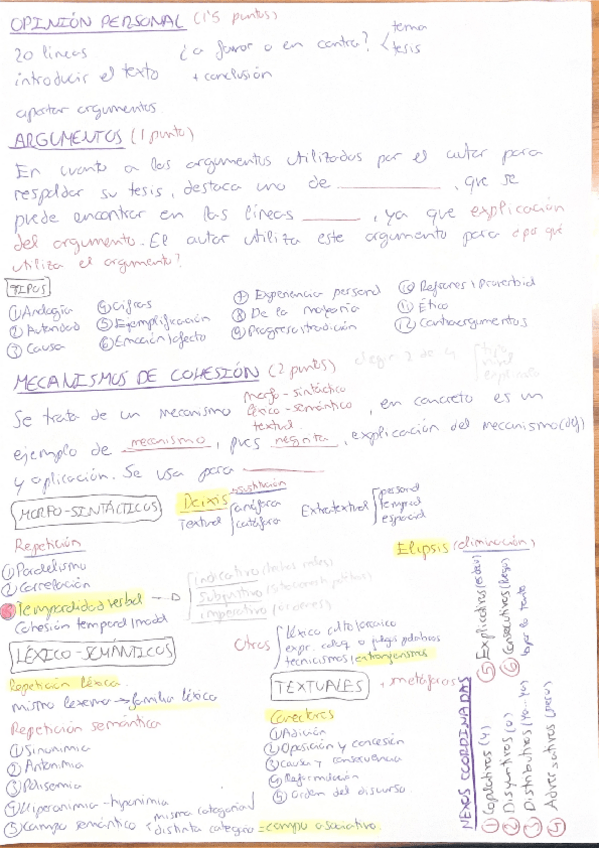 OPINIÓN PERSONAL (1'5 puntos)
20 líneas ¿a favor o en contra? < tema
tesis
introducir el texto + conclusión
aportar argumentos
ARGUMENTOS (1 punto)
En cuanto a los argumentos utilizados por el autor para
respaldar su tesis, destaca uno de ________, que se
puede encontrar en las líneas ______, ya que explicación
del argumento. El autor utiliza este argumento para ¿por qué
utiliza el argumento?
TIPOS
① Analogía ④ Cifras ⑦ Experiencia personal ⑩ Refranes / Proverbio
② Autoridad ⑤ Ejemplificación ⑧ De la mayoría ⑪ Ético
③ Causa ⑥ Emoción / afecto ⑨ Progreso / tradición ⑫ Contraargumentos
MECANISMOS DE COHESIÓN (2 puntos) elegir 2 de 4
morfo-sintáctico
Se trata de un mecanismo léxico-semántico, en concreto es un
textual
ejemplo de mecanismo, pues negrita, explicación del mecanismo (def)
y aplicación. Se usa para ______
MORFO-SINTÁCTICOS
Deixis → sustitución
Textual anáfora
catáfora
Extratextual personal
temporal
espacial
Repetición
① Paralelismo
② Correlación
③ Temporalidad verbal → indicativo
subjuntivo
imperativo
Cohesión temporal / modal
Elipsis (eliminación)
LÉXICO-SEMÁNTICOS
Otros léxico culto
expr. coloq. o juegos palabras
tecnicismos / extranjerismos
Repetición léxica
mismo lexema → familia léxica
Repetición semántica
① Sinonimia
② Antonimia
③ Polisemia
④ Hiperonimia-hiponimia
⑤ Campo semántico < misma categoría
distinta categoría = campo asociativo
TEXTUALES + metáforas
Conectores
① Adición
② Oposición y concesión
③ Causa y consecuencia
④ Reformulación
⑤ Orden del discurso
NEXOS COORDINADAS
① Copulativos (y)
② Disyuntivos (o)
③ Distributivos (ya... ya)
④ Adversativos (pero)
⑤ Explicativos (es decir)
⑥ Consecutivos (luego)
por lo tanto